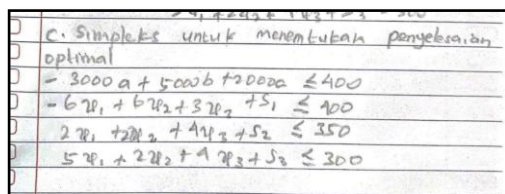 c. Simpleks untuk menentukan penyelesaian
optimal
- 3000a + 5000b + 2000a ≤ 400
- 6x₁ + 6x₂ + 3x₂ + S₁ ≤ 400
2x₁ + 2x₂ + 4x₃ + S₂ ≤ 350
5x₁ + 2x₂ + 4x₃ + S₃ ≤ 300